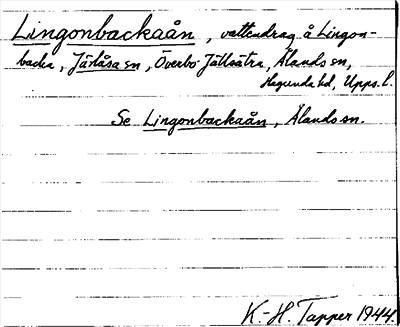 Lingonbackaån, vattendrag å Lingon-
backa, Järlåsa sn, Överbo Jällsätra, Ålands sn,
Hagunda hd, Upps. l.
Se Lingonbackaån, Ålands sn.
K.-H. Tapper 1944.